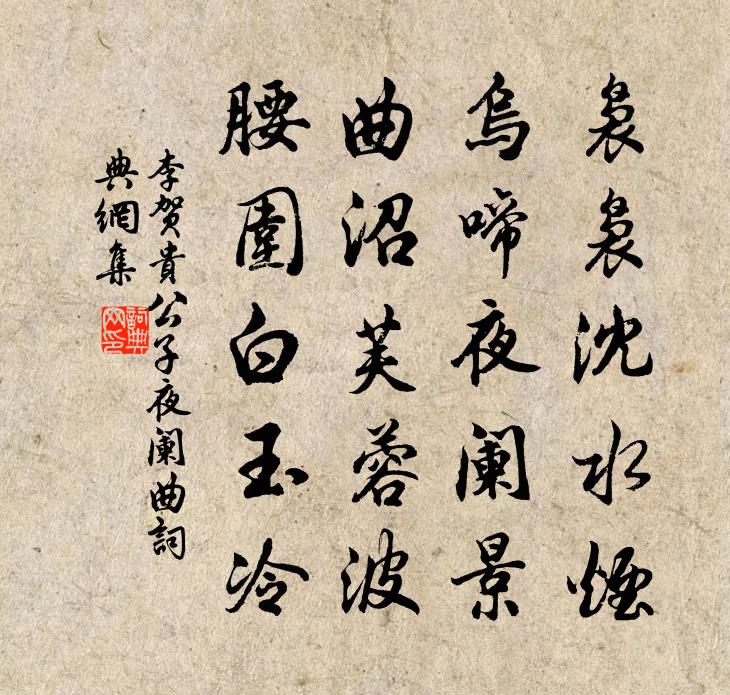 裊裊沈水煙
烏啼夜闌景
曲沼芙蓉波
腰圍白玉冷
李賀貴公子夜闌曲詞
典網集
詞典網印